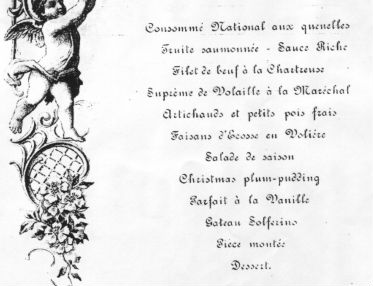 Consommé National aux quenelles
Truite saumonnée - Sauce Riche
Filet de beuf à la Chartreuse
Suprême de Volaille à la Maréchal
Artichauds et petits pois frais
Faisans d'Ecosse en Volière
Salade de saison
Christmas plum-pudding
Parfait à la Vanille
Gateau Solferino
Pièce montée
Dessert.